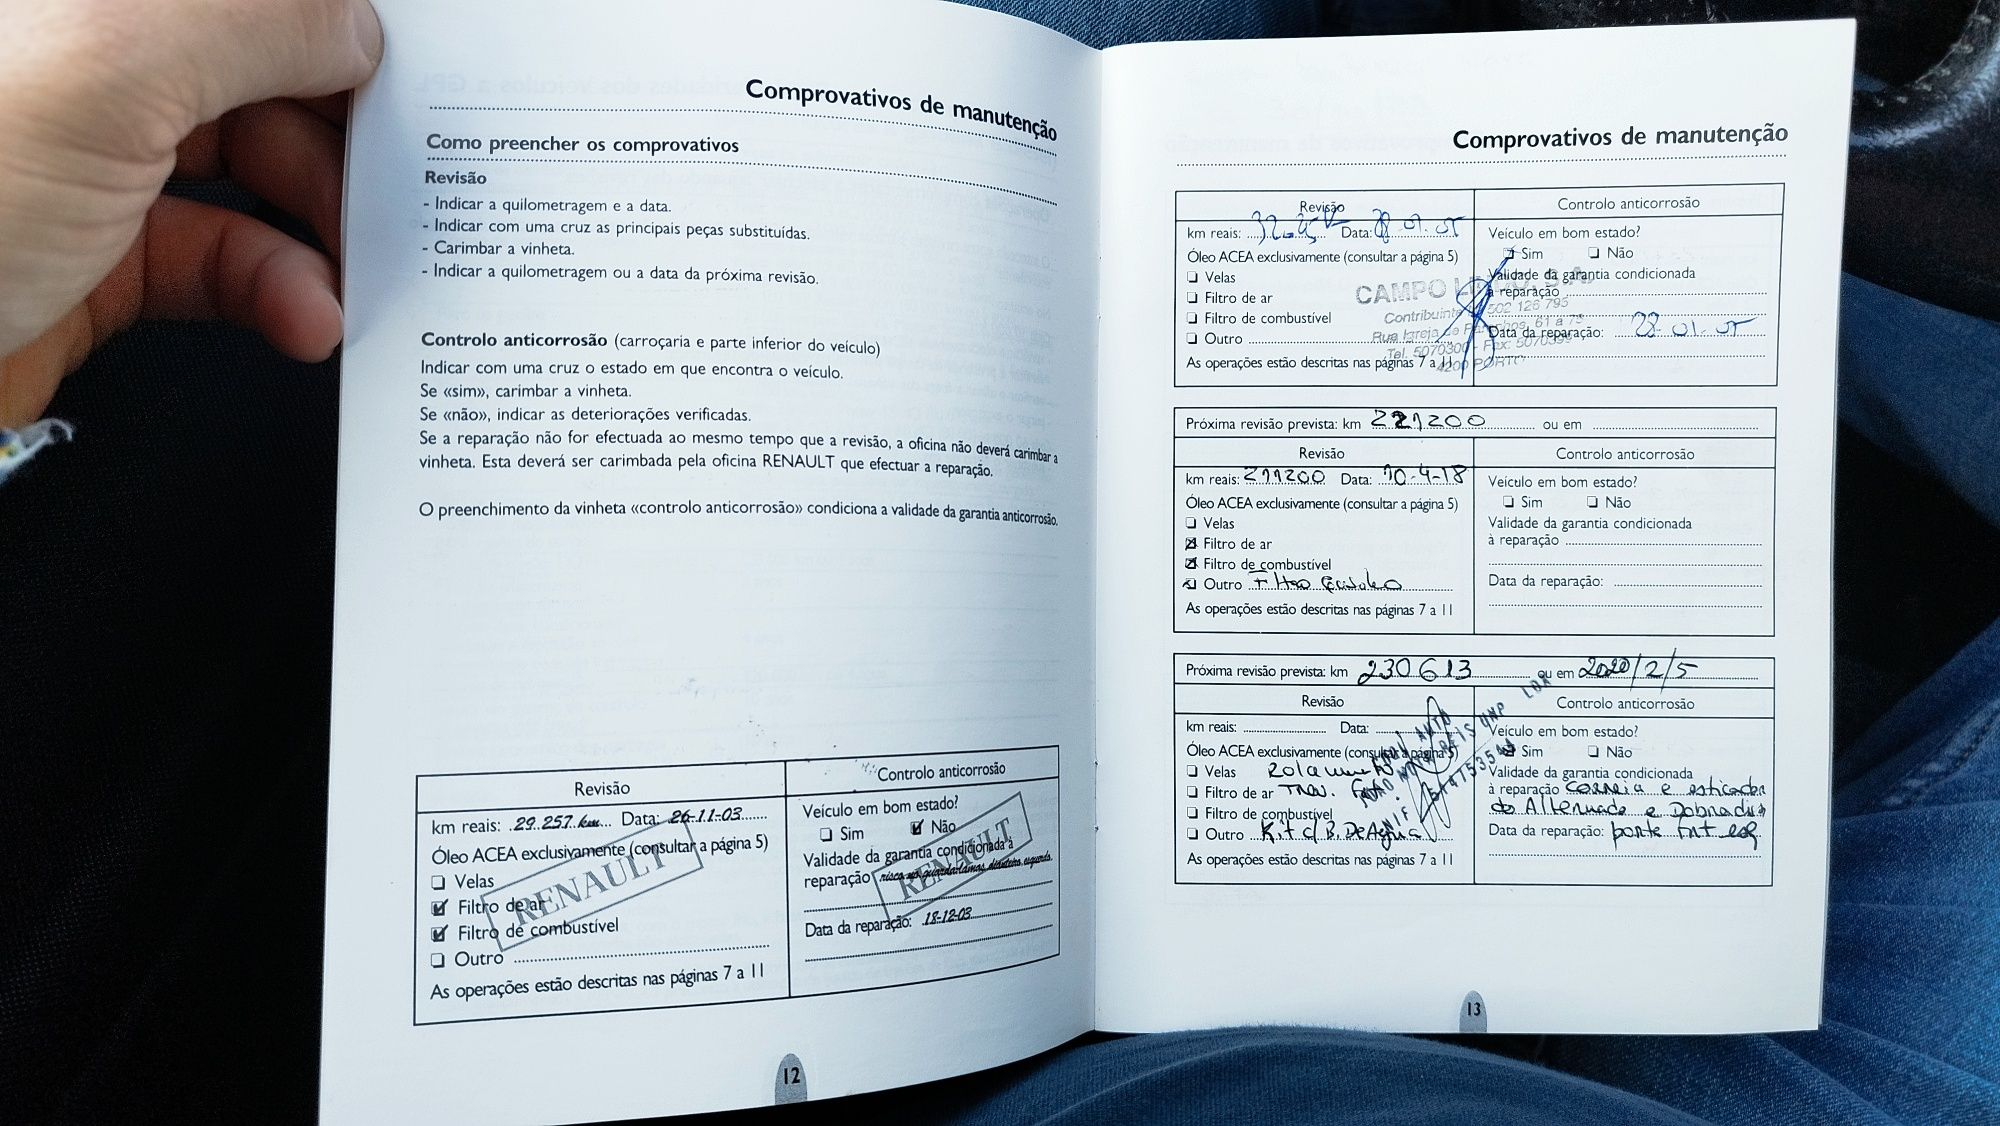 Comprovativos de manutenção
Como preencher os comprovativos
Revisão
- Indicar a quilometragem e a data.
- Indicar com uma cruz as principais peças substituídas.
- Carimbar a vinheta.
- Indicar a quilometragem ou a data da próxima revisão.
Controlo anticorrosão (carroçaria e parte inferior do veículo)
Indicar com uma cruz o estado em que encontra o veículo.
Se «sim», carimbar a vinheta.
Se «não», indicar as deteriorações verificadas.
Se a reparação não for efectuada ao mesmo tempo que a revisão, a oficina não deverá carimbar a
vinheta. Esta deverá ser carimbada pela oficina RENAULT que efectuar a reparação.
O preenchimento da vinheta «controlo anticorrosão» condiciona a validade da garantia anticorrosão.
Revisão
km reais: 29.257 km Data: 26-11-03
Óleo ACEA exclusivamente (consultar a página 5)
Velas
Filtro de ar
Filtro de combustível
Outro
As operações estão descritas nas páginas 7 a 11
RENAULT
Controlo anticorrosão
Veículo em bom estado?
Sim Não
Validade da garantia condicionada à
reparação risco no guardalamas dianteiro esquerdo
Data da reparação: 18-12-03
RENAULT
12
Comprovativos de manutenção
Revisão
km reais: Data: 28.01.05
Óleo ACEA exclusivamente (consultar a página 5)
Velas
Filtro de ar
Filtro de combustível
Outro
As operações estão descritas nas páginas 7 a 11
Controlo anticorrosão
Veículo em bom estado?
Sim Não
Validade da garantia condicionada
à reparação
Data da reparação: 28.01.05
CAMPO
Contribuinte 502 126 795
Rua Igreja de 61 a 75
Tel. 5070300 - Fax: 5070399
4200 PORTO
Próxima revisão prevista: km 221200 ou em
Revisão
km reais: 211200 Data: 10-4-18
Óleo ACEA exclusivamente (consultar a página 5)
Velas
Filtro de ar
Filtro de combustível
Outro Filtro
As operações estão descritas nas páginas 7 a 11
Controlo anticorrosão
Veículo em bom estado?
Sim Não
Validade da garantia condicionada
à reparação
Data da reparação:
Próxima revisão prevista: km 230613 ou em 2020/2/5
Revisão
km reais: Data:
Óleo ACEA exclusivamente (consultar a página 5)
Velas
Filtro de ar Trav.
Filtro de combustível
Outro Kit c/ B. De Agua
As operações estão descritas nas páginas 7 a 11
Controlo anticorrosão
Veículo em bom estado?
Sim Não
Validade da garantia condicionada
à reparação Correia e esticador
do e
Data da reparação: porta
AUTO
REIS UNIP LDA
NIF
13